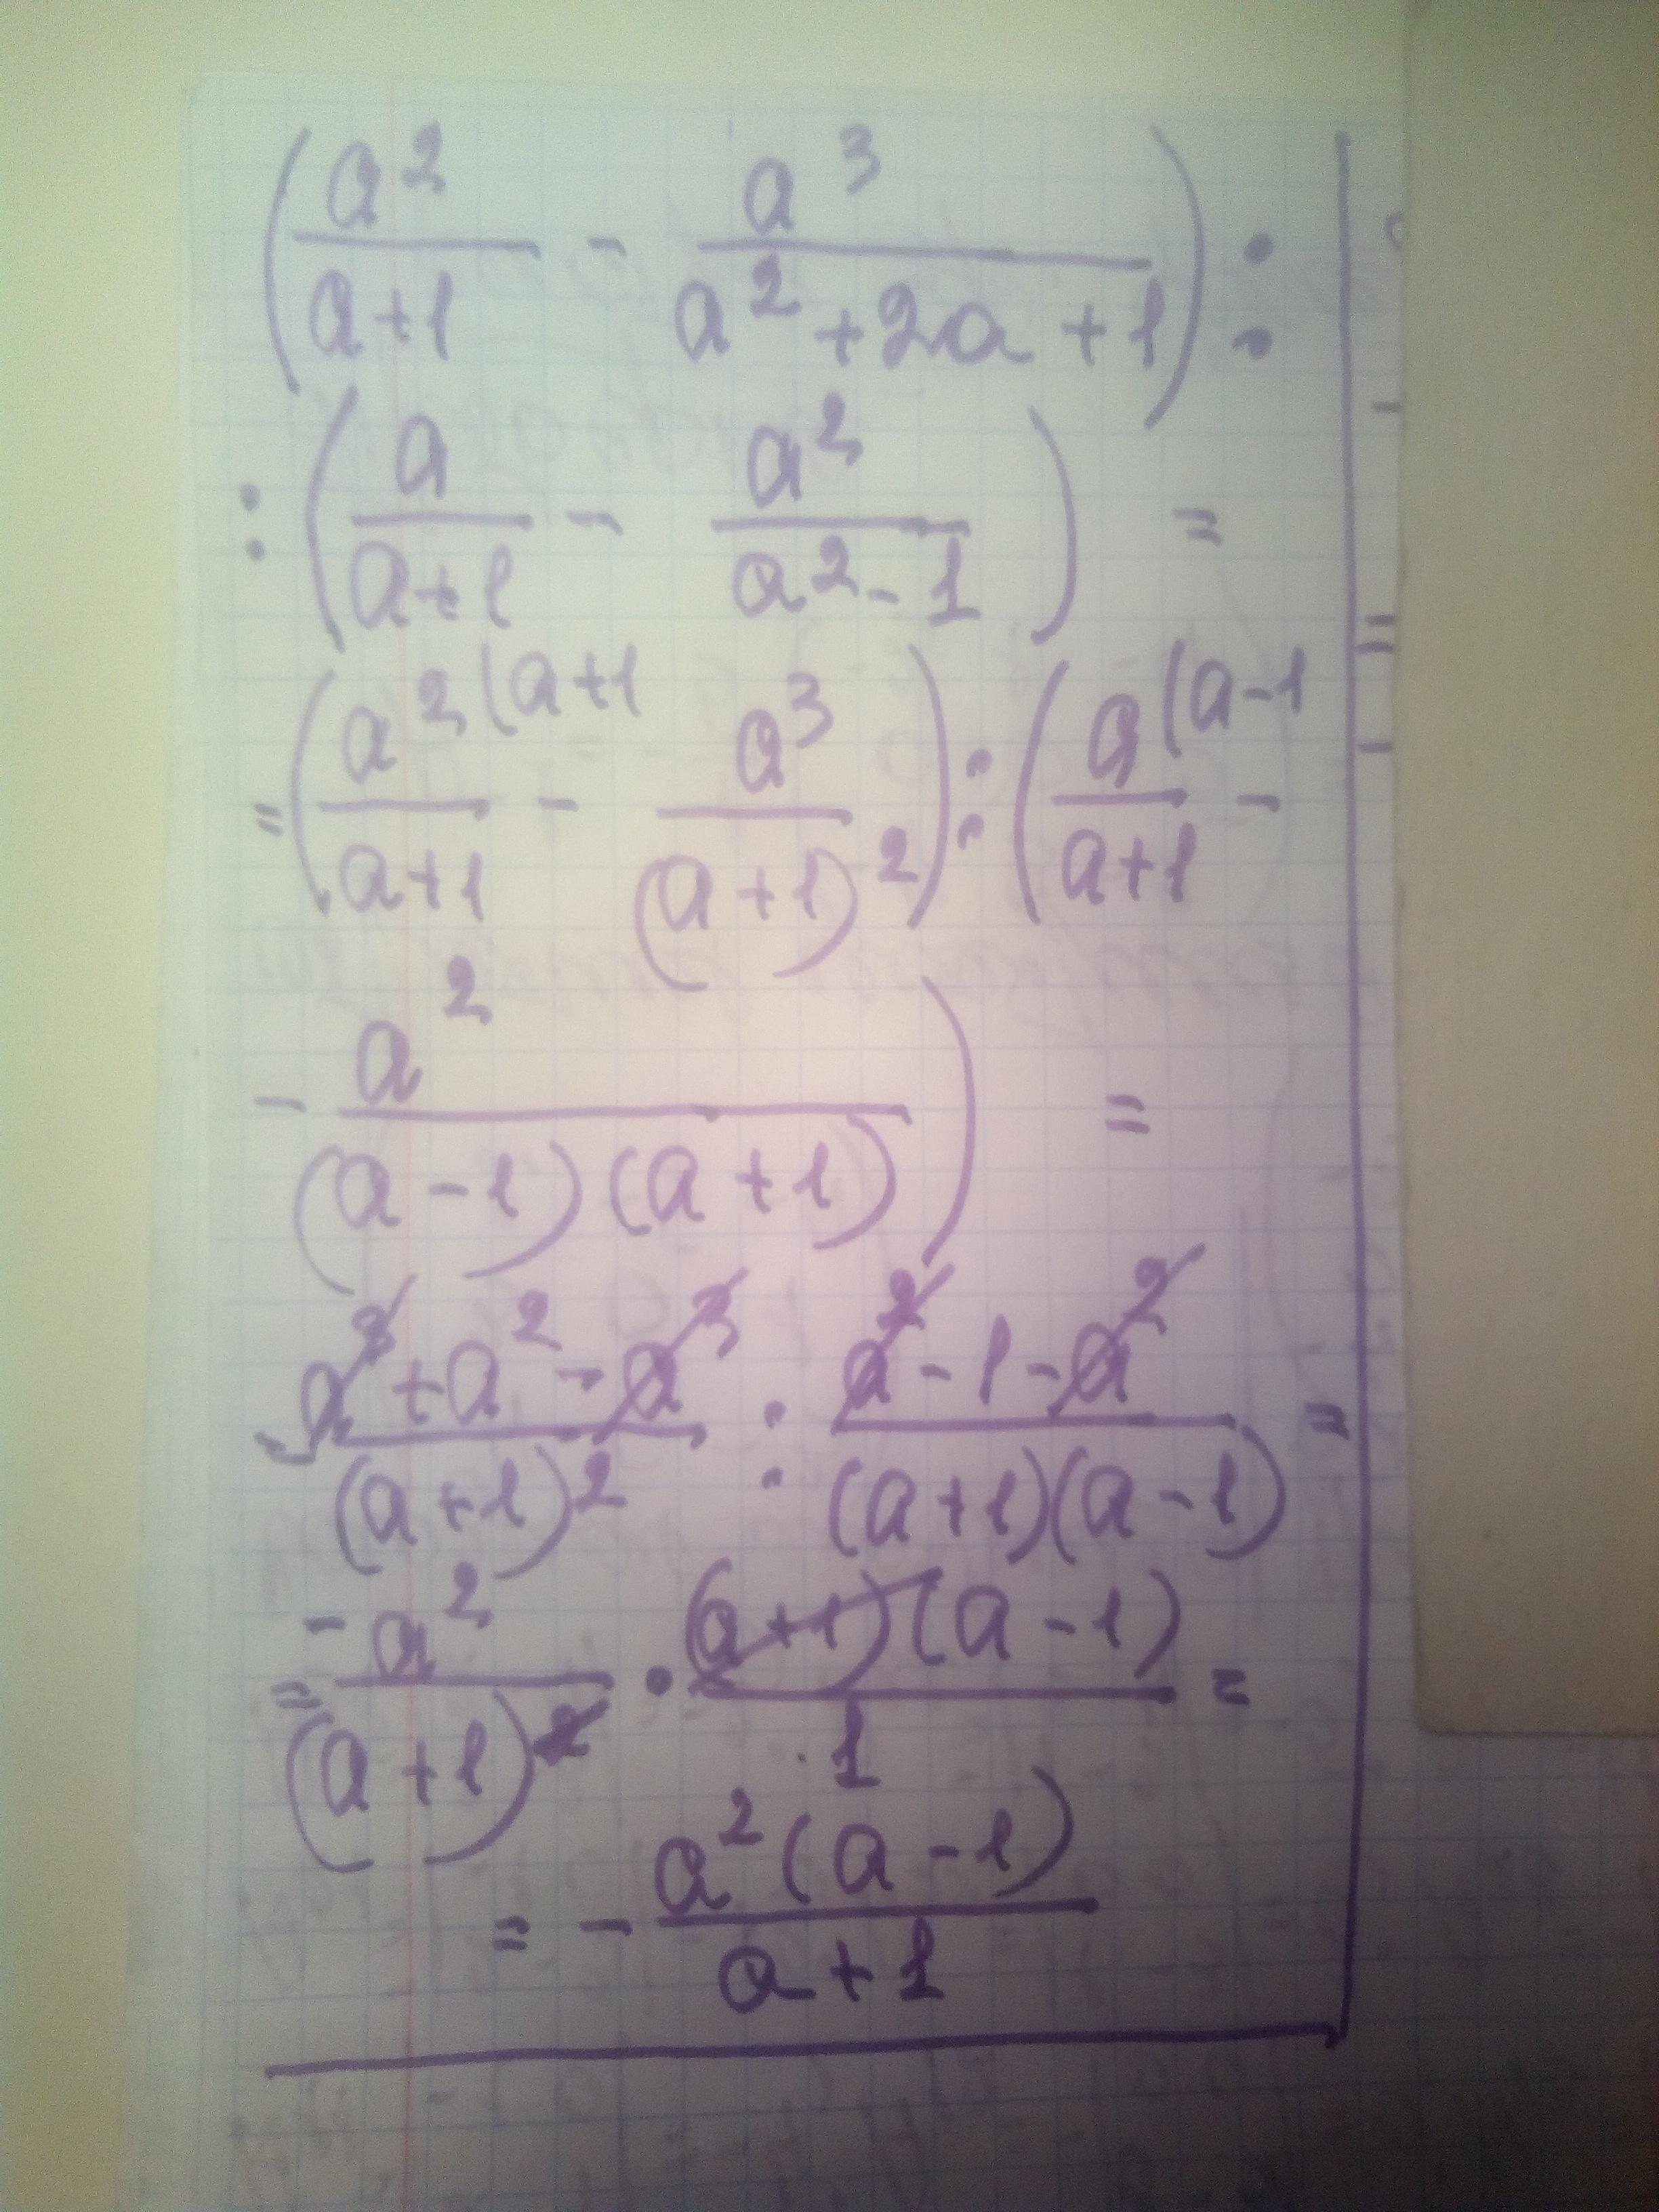 (a²/(a+1) - a³/(a²+2a+1)) :
: (a/(a+1) - a²/(a²-1)) =
= (a² (a+1/(a+1) - a³/(a+1)²) : (a (a-1/(a+1) -
- a²/((a-1)(a+1))) =
= (a³+a²-a³)/(a+1)² : (a²-1-a²)/((a+1)(a-1)) =
= -a²/(a+1)² · ((a+1)(a-1))/1 =
= - a²(a-1)/(a+1)